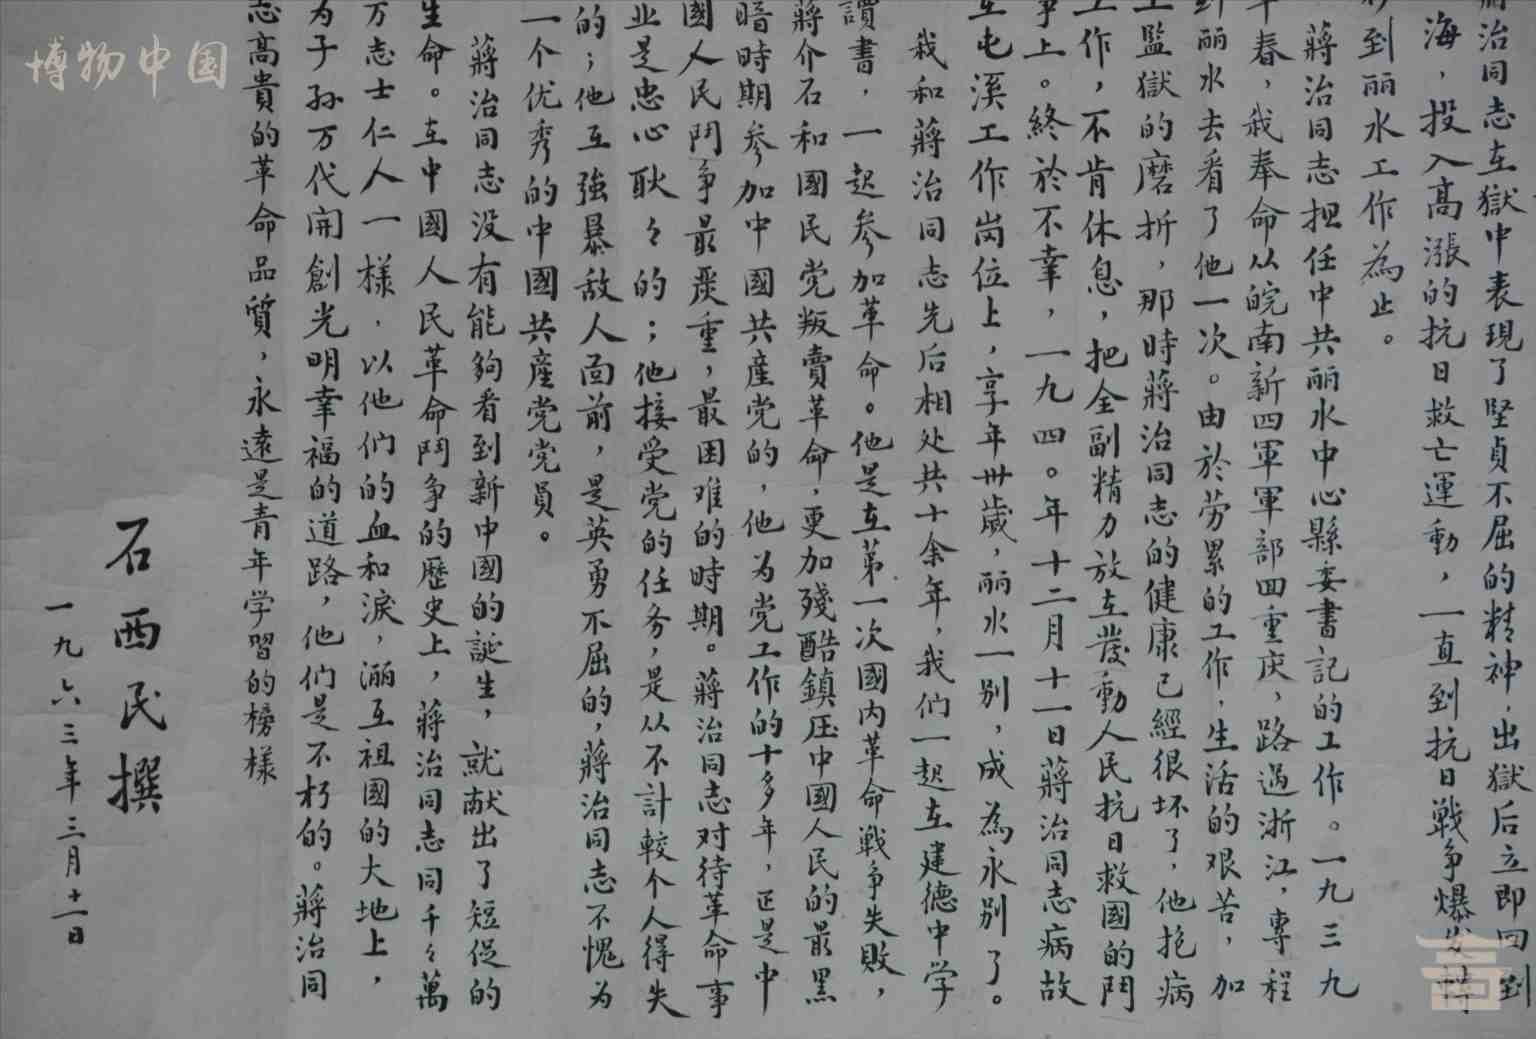 治同志在獄中表現了堅貞不屈的精神，出獄后立即回到
海，投入高漲的抗日救亡運動，一直到抗日戰争爆发轉
到丽水工作為止。
蔣治同志担任中共丽水中心縣委書記的工作。一九三九
年春，我奉命从皖南新四軍軍部回重庆，路過浙江，專程
到丽水去看了他一次。由於劳累的工作，生活的艰苦，加
上監獄的磨折，那時蔣治同志的健康已經很坏了，他抱病
工作，不肯休息，把全副精力放在發動人民抗日救國的鬥
争上。終於不幸，一九四〇年十二月十一日蔣治同志病故
在屯溪工作崗位上，享年卅歲，丽水一别，成為永别了。
我和蔣治同志先后相处共十余年，我们一起在建德中学
讀書，一起參加革命。他是在第一次國内革命戰争失敗，
蔣介石和國民党叛賣革命，更加殘酷鎮压中國人民的最黑
暗時期參加中國共産党的，他为党工作的十多年，正是中
國人民鬥争最嚴重，最困难的時期。蔣治同志对待革命事
业是忠心耿々的；他接受党的任务，是从不計較个人得失
的；他在強暴敌人面前，是英勇不屈的，蔣治同志不愧为
一个优秀的中國共産党党員。
蔣治同志没有能夠看到新中國的誕生，就献出了短促的
生命。在中國人民革命鬥争的歷史上，蔣治同志同千々萬
万志士仁人一樣，以他们的血和淚，洒在祖國的大地上，
为子孙万代開創光明幸福的道路，他们是不朽的。蔣治同
志高貴的革命品質，永遠是青年学習的榜樣
石西民撰
一九六三年三月十一日
博物中国